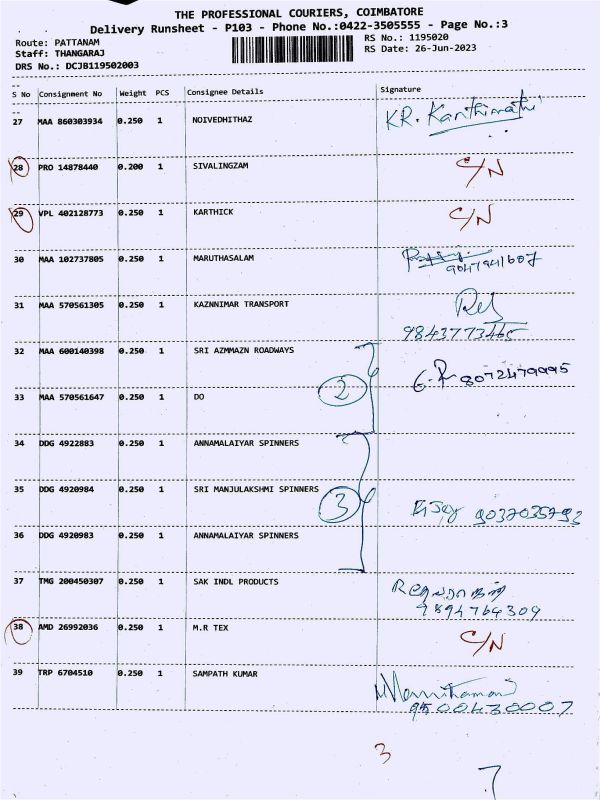 THE PROFESSIONAL COURIERS, COIMBATORE
Delivery Runsheet - P103 - Phone No.:0422-3505555 - Page No.:3
Route: PATTANAM
RS No.: 1195020
Staff: THANGARAJ
RS Date: 26-Jun-2023
DRS No.: DCJB119502003
S No Consignment No Weight PCS Consignee Details Signature
27 MAA 860303934 0.250 1 NOIVEDHITHAZ KR. Kanthimathi
28 PRO 14878440 0.200 1 SIVALINGZAM C/N
29 VPL 402128773 0.250 1 KARTHICK C/N
30 MAA 102737805 0.250 1 MARUTHASALAM
9047941607
31 MAA 570561305 0.250 1 KAZNNIMAR TRANSPORT
9843773465
32 MAA 600140398 0.250 1 SRI AZMMAZN ROADWAYS
2 G.R 8072479995
33 MAA 570561647 0.250 1 DO
34 DDG 4922883 0.250 1 ANNAMALAIYAR SPINNERS
35 DDG 4920984 0.250 1 SRI MANJULAKSHMI SPINNERS
3 9037035793
36 DDG 4920983 0.250 1 ANNAMALAIYAR SPINNERS
37 TMG 200450307 0.250 1 SAK INDL PRODUCTS
9894764309
38 AMD 26992036 0.250 1 M.R TEX C/N
39 TRP 6704510 0.250 1 SAMPATH KUMAR
9500430007
3
7